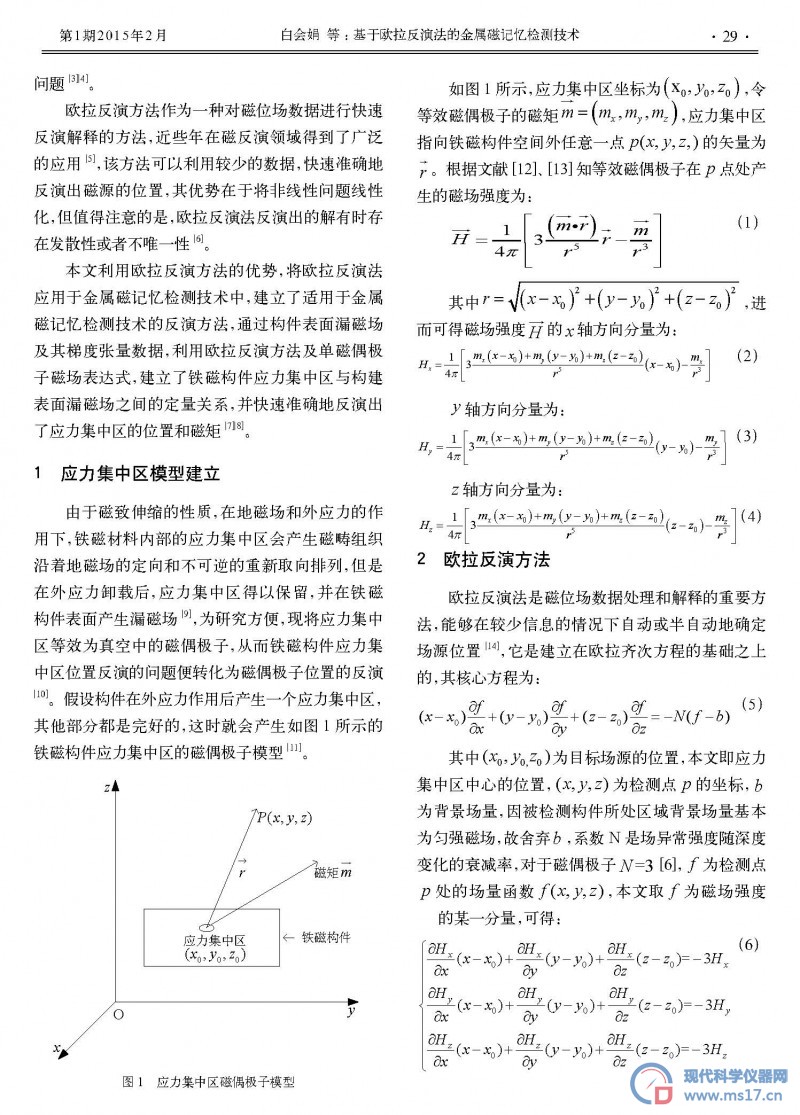 第1期2015年2月 白会娟 等:基于欧拉反演法的金属磁记忆检测技术 ·29·
问题[3][4]。
欧拉反演方法作为一种对磁位场数据进行快速
反演解释的方法,近些年在磁反演领域得到了广泛
的应用[5],该方法可以利用较少的数据,快速准确地
反演出磁源的位置,其优势在于将非线性问题线性
化,但值得注意的是,欧拉反演法反演出的解有时存
在发散性或者不唯一性[6]。
本文利用欧拉反演方法的优势,将欧拉反演法
应用于金属磁记忆检测技术中,建立了适用于金属
磁记忆检测技术的反演方法,通过构件表面漏磁场
及其梯度张量数据,利用欧拉反演方法及单磁偶极
子磁场表达式,建立了铁磁构件应力集中区与构建
表面漏磁场之间的定量关系,并快速准确地反演出
了应力集中区的位置和磁矩[7][8]。
1 应力集中区模型建立
由于磁致伸缩的性质,在地磁场和外应力的作
用下,铁磁材料内部的应力集中区会产生磁畴组织
沿着地磁场的定向和不可逆的重新取向排列,但是
在外应力卸载后,应力集中区得以保留,并在铁磁
构件表面产生漏磁场[9],为研究方便,现将应力集中
区等效为真空中的磁偶极子,从而铁磁构件应力集
中区位置反演的问题便转化为磁偶极子位置的反演
[10]。假设构件在外应力作用后产生一个应力集中区,
其他部分都是完好的,这时就会产生如图1所示的
铁磁构件应力集中区的磁偶极子模型[11]。
z
P(x, y, z)
r⃗
磁矩m⃗
应力集中区
(x₀, y₀, z₀)
← 铁磁构件
O
y
x
图1 应力集中区磁偶极子模型
如图1所示,应力集中区坐标为(x₀, y₀, z₀),令
等效磁偶极子的磁矩m⃗ = (mₓ, m_y, m_z),应力集中区
指向铁磁构件空间外任意一点 p(x, y, z,) 的矢量为
r⃗。根据文献[12]、[13]知等效磁偶极子在 p 点处产
生的磁场强度为:
H⃗ = 1/4π [3 (m⃗•r⃗)/r⁵ r⃗ − m⃗/r³] (1)
其中 r = √((x−x₀)² + (y−y₀)² + (z−z₀)²) ,进
而可得磁场强度 H⃗ 的 x 轴方向分量为:
Hₓ = 1/4π [3 (mₓ(x−x₀)+m_y(y−y₀)+m_z(z−z₀))/r⁵ (x−x₀) − mₓ/r³] (2)
y 轴方向分量为:
H_y = 1/4π [3 (mₓ(x−x₀)+m_y(y−y₀)+m_z(z−z₀))/r⁵ (y−y₀) − m_y/r³] (3)
z 轴方向分量为:
H_z = 1/4π [3 (mₓ(x−x₀)+m_y(y−y₀)+m_z(z−z₀))/r⁵ (z−z₀) − m_z/r³] (4)
2 欧拉反演方法
欧拉反演法是磁位场数据处理和解释的重要方
法,能够在较少信息的情况下自动或半自动地确定
场源位置[14],它是建立在欧拉齐次方程的基础之上
的,其核心方程为:
(x−x₀)∂f/∂x + (y−y₀)∂f/∂y + (z−z₀)∂f/∂z = −N(f−b) (5)
其中(x₀, y₀,z₀)为目标场源的位置,本文即应力
集中区中心的位置, (x, y, z) 为检测点 p 的坐标, b
为背景场量,因被检测构件所处区域背景场量基本
为匀强磁场,故舍弃b ,系数 N 是场异常强度随深度
变化的衰减率,对于磁偶极子 N=3 [6], f 为检测点
p 处的场量函数 f(x, y, z) ,本文取 f 为磁场强度
的某一分量,可得:
∂Hₓ/∂x (x−x₀)+ ∂Hₓ/∂y (y−y₀)+ ∂Hₓ/∂z (z−z₀)=−3Hₓ (6)
∂H_y/∂x (x−x₀)+ ∂H_y/∂y (y−y₀)+ ∂H_y/∂z (z−z₀)=−3H_y
∂H_z/∂x (x−x₀)+ ∂H_z/∂y (y−y₀)+ ∂H_z/∂z (z−z₀)=−3H_z
现代科学仪器网
www.ms17.cn